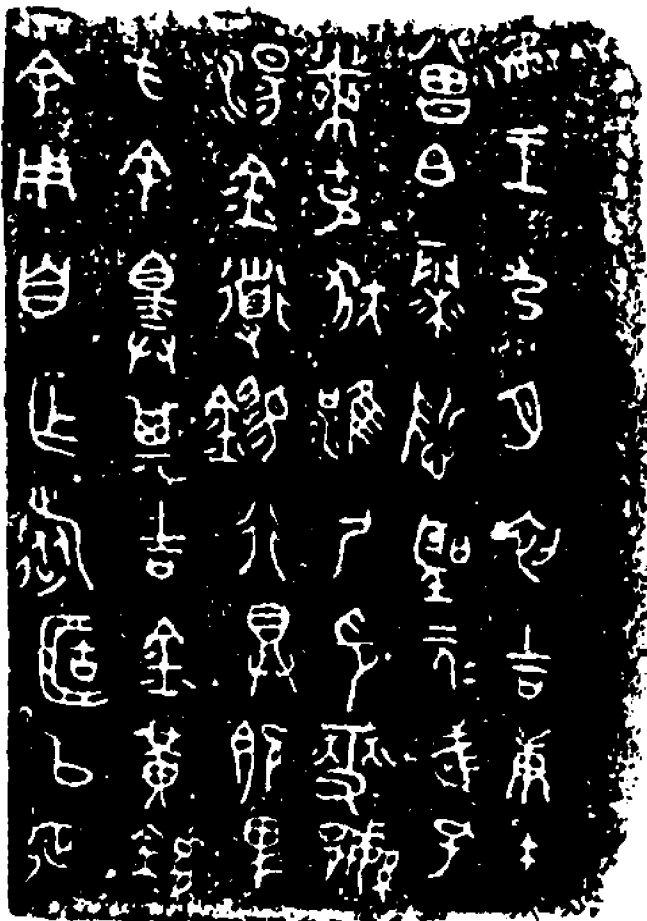 隹王九月初吉庚午
曾白霥悊聖元=武=孔
黹克狄淮尸卬燮繁
湯金道錫行具既卑
方余擇其吉金黃鑪
余用自乍旅𠤳以征